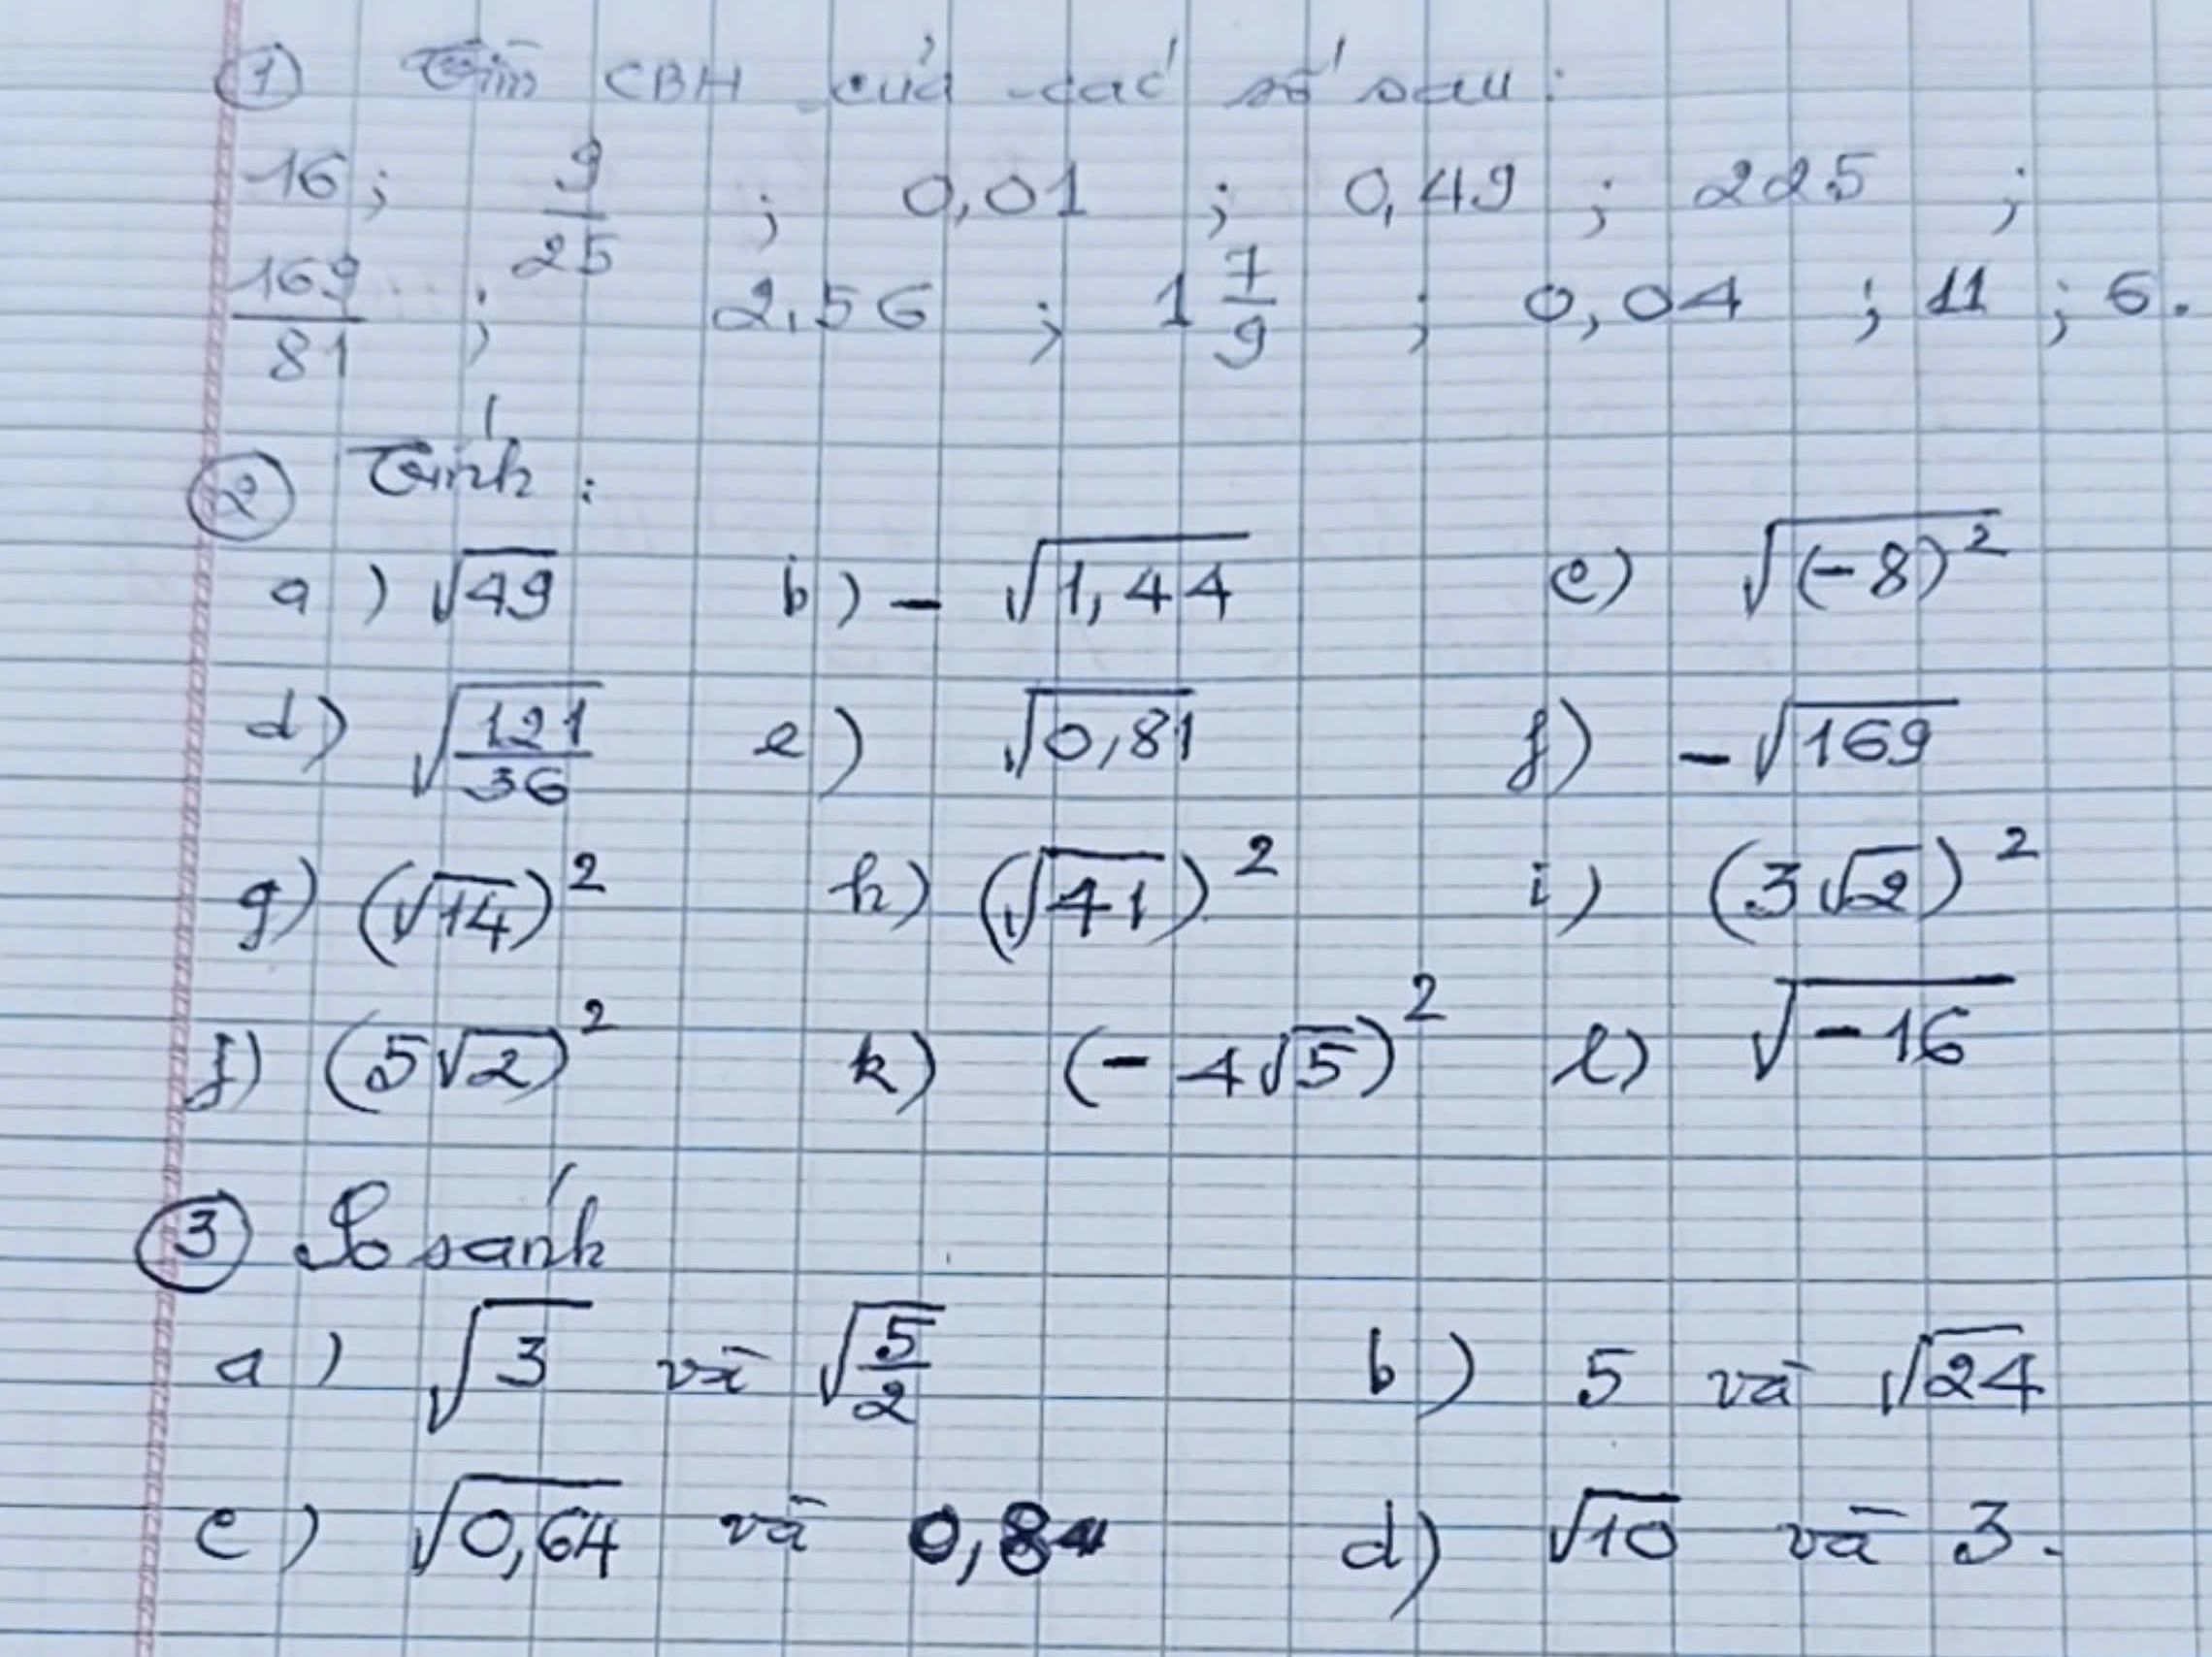 ① Tìm CBH của các số sau:
16; 9/25 ; 0,01 ; 0,49 ; 225 ;
169/81 ; 2,56 ; 1 7/9 ; 0,04 ; 11 ; 6.
② Tính:
a) √49 b) - √1,44 c) √(-8)²
d) √121/36 e) √0,81 f) - √169
g) (√14)² h) (√41)² i) (3√2)²
j) (5√2)² k) (- 4√5)² l) √-16
③ So sánh
a) √3 và √5/2 b) 5 và √24
c) √0,64 và 0,8 d) √10 và 3.